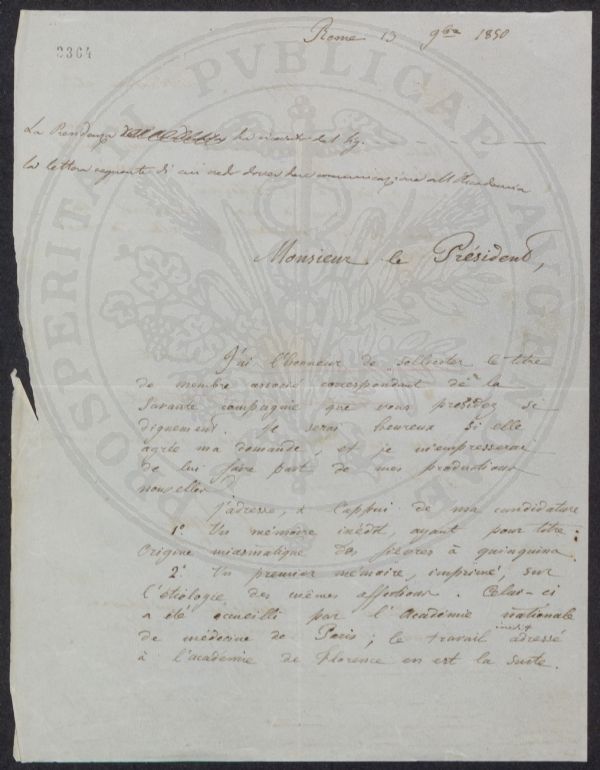 Rome 13 9bre 1850
2364
La Presidenza
la lettera seguente di cui credo dover dare comunicazione all'Accademia
Monsieur le Président,
J'ai l'honneur de solliciter le titre
de membre associé correspondant de la
Savante compagnie que vous présidez si
dignement. Je serai heureux si elle
agrée ma demande, et je m'empresserai
de lui faire part de mes productions
nouvelles.
J'adresse, à l'appui de ma candidature
1º Un mémoire inédit, ayant pour titre :
Origine miasmatique des fièvres à quinquina.
2º Un premier mémoire, imprimé, sur
l'étiologie des mêmes affections. Celui-ci
a été accueilli par l'Académie nationale
de médecine de Paris ; le travail inédit adressé
à l'académie de Florence en est la suite.
PROSPERITATI PVBLICAE AVGENDAE